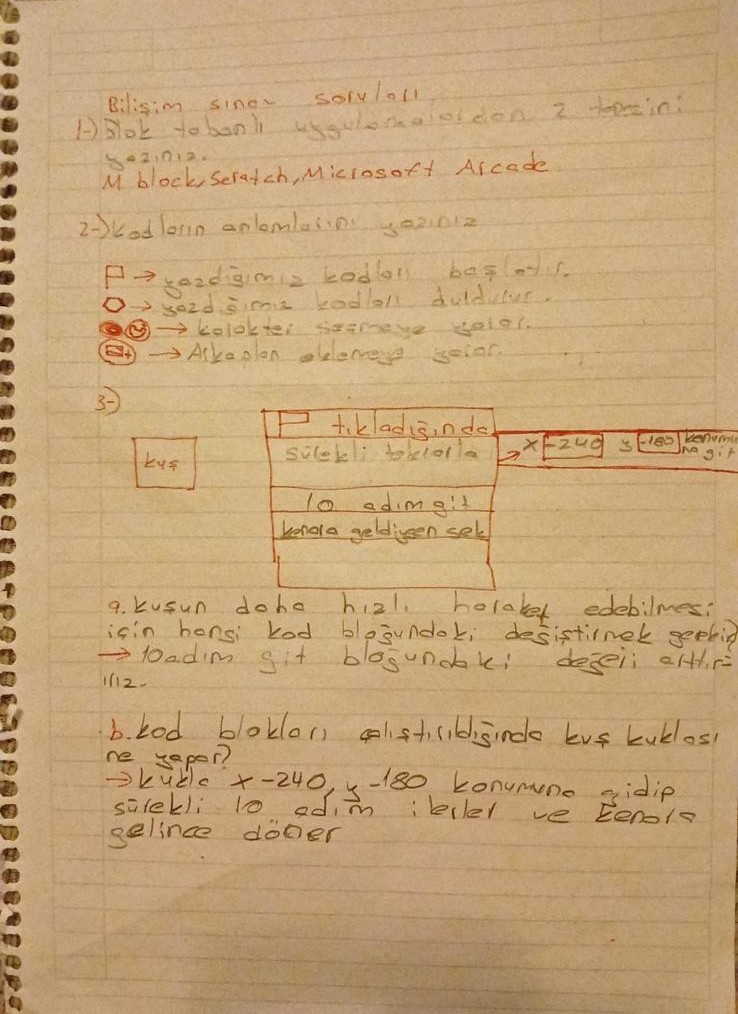 Bilişim sınav soruları
1-) Blok tabanlı uygulamalardan 2 tanesini
yazınız.
M block, Scratch, Microsoft Arcade
2-) kodların anlamlarını yazınız
→ yazdığımız kodları başlatır.
→ yazdığımız kodları durdurur.
→ karakter seçmeye yarar.
→ Arkaplan eklemeye yarar.
3-)
kuş
tıkladığında
sürekli tekrarla
→ x -240 y -180 konumuna git
10 adım git
kenara geldiysen sek
a. kuşun daha hızlı hareket edebilmesi
için hangi kod bloğundaki değiştirmek gerekir?
→ 10 adım git bloğundaki değeri arttır-
ırız.
b. kod blokları çalıştırıldığında kuş kuklası
ne yapar?
→ kukla x -240, y -180 konumuna gidip
sürekli 10 adım ilerler ve kenara
gelince döner